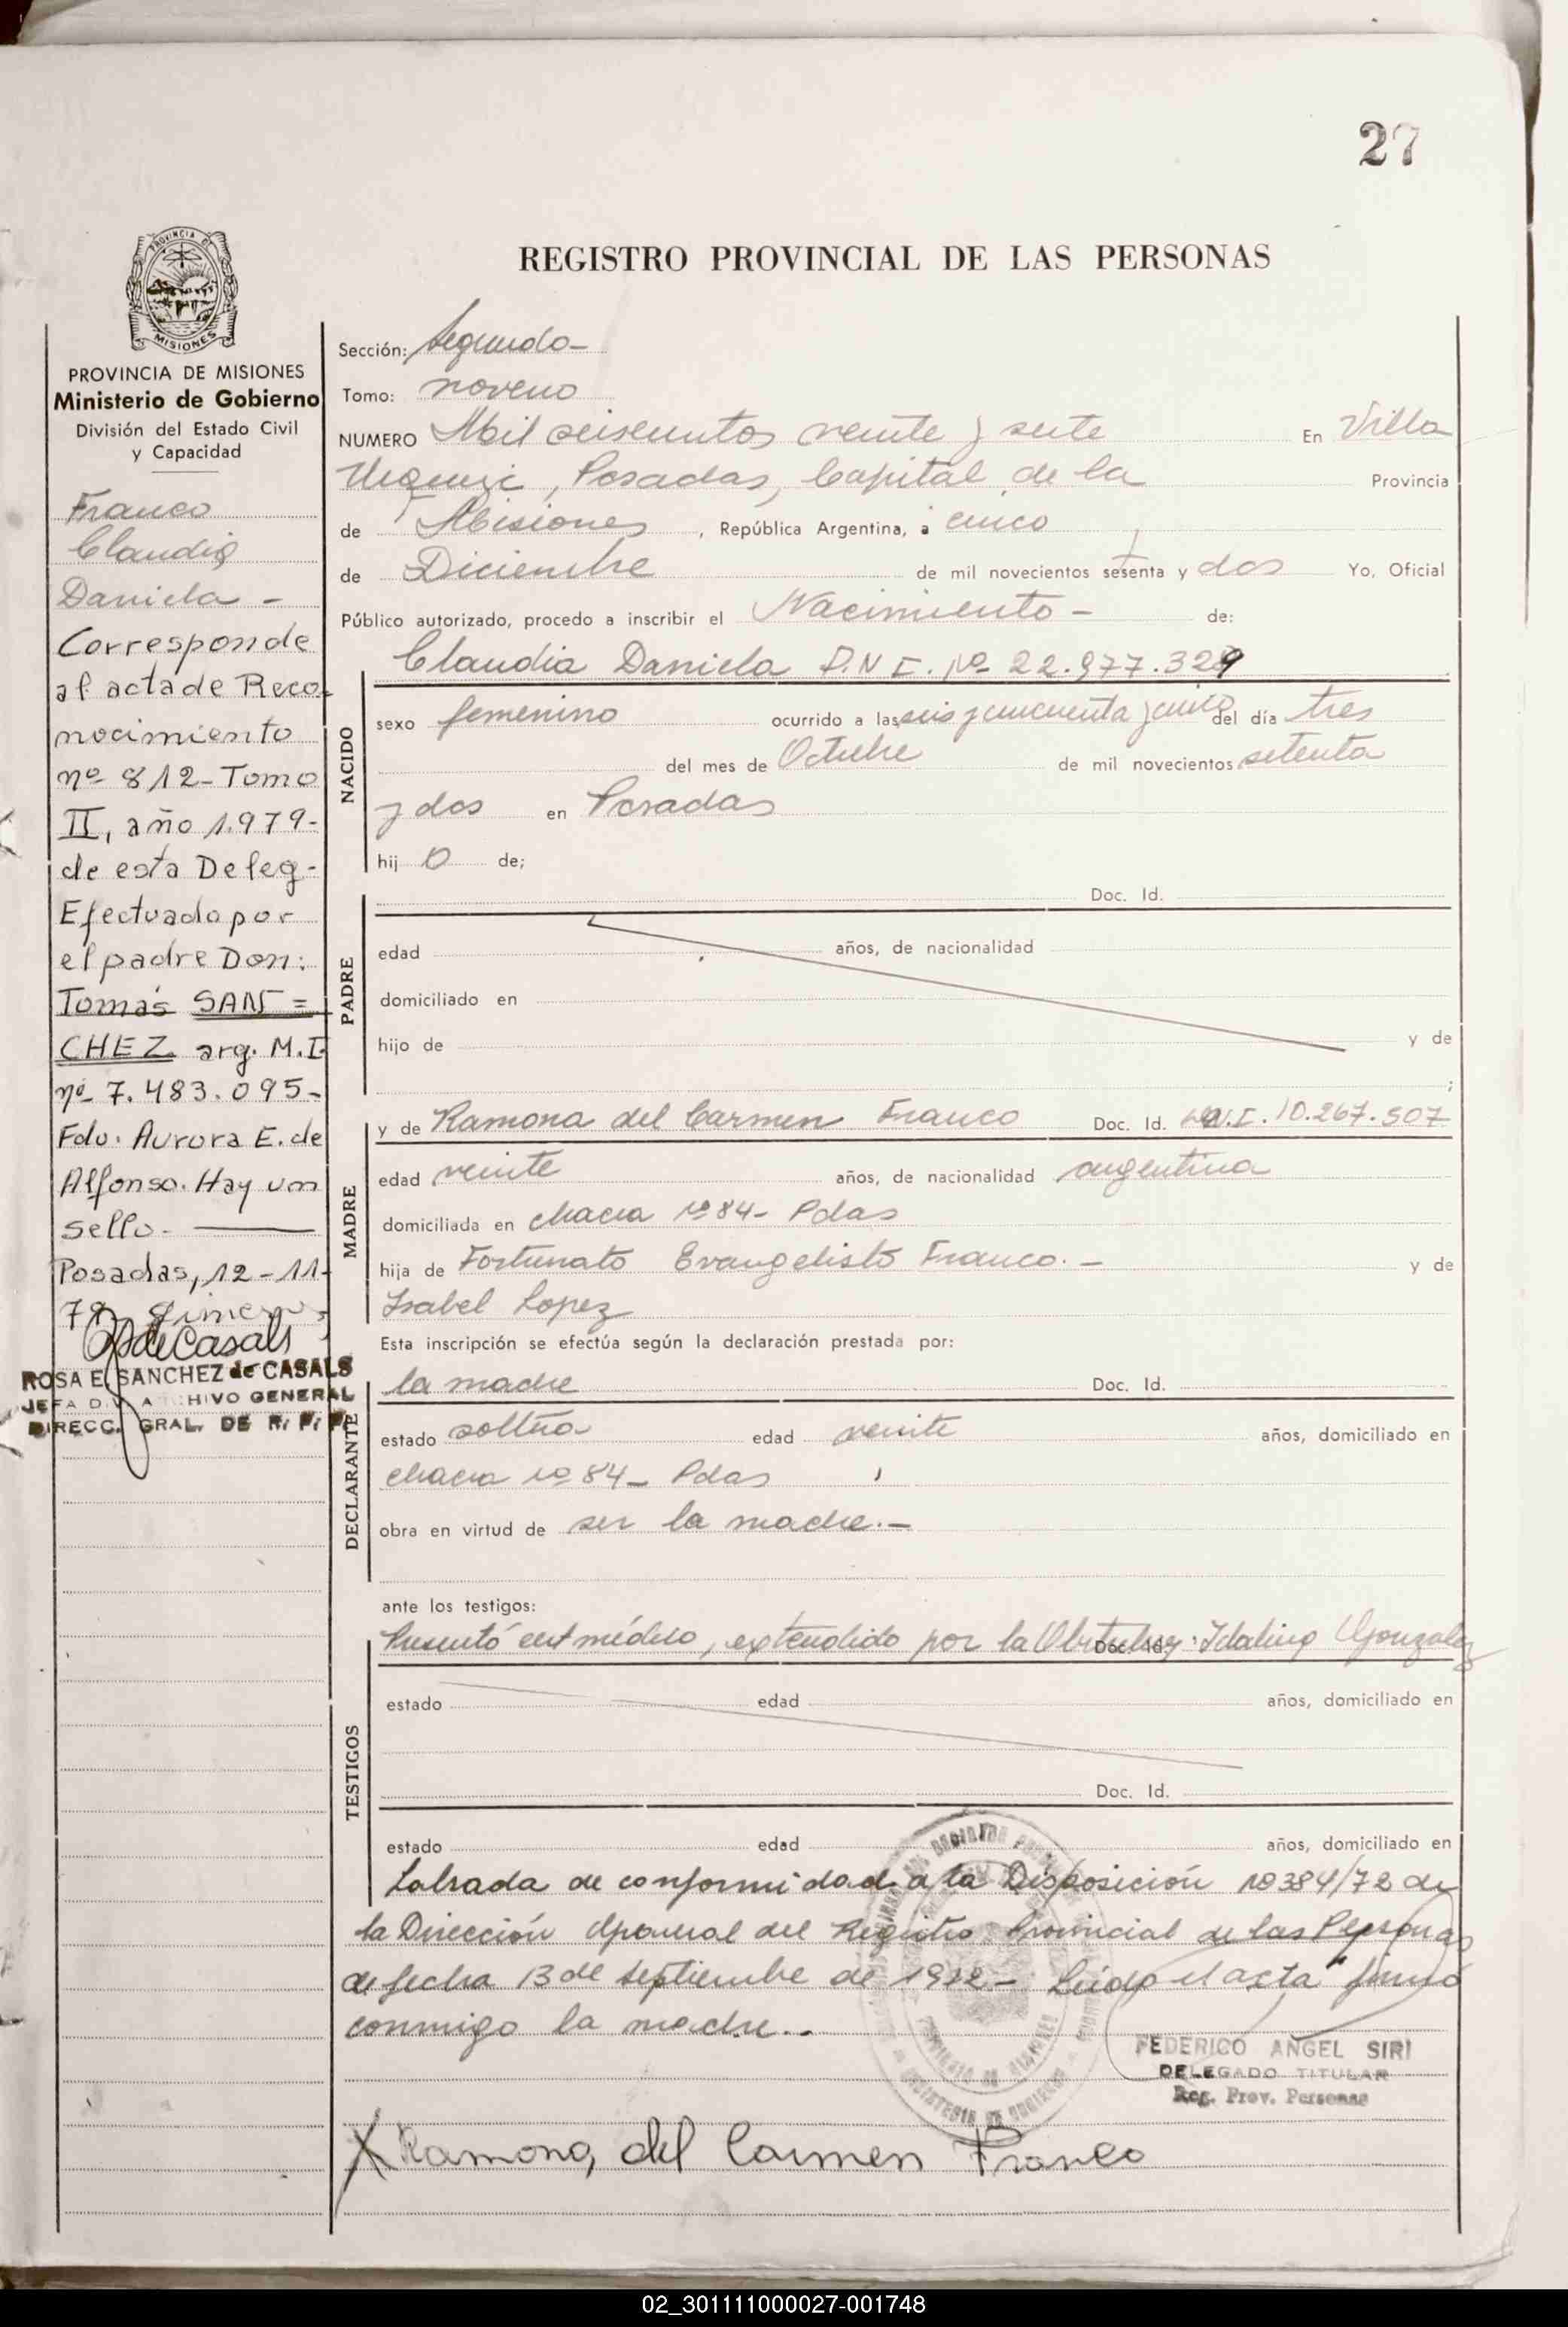 27
REGISTRO PROVINCIAL DE LAS PERSONAS
PROVINCIA DE
MISIONES
PROVINCIA DE MISIONES
Ministerio de Gobierno
División del Estado Civil
y Capacidad
Franco
Claudia
Daniela -
Corresponde
al acta de Reco
nocimiento
nº 812-Tomo
II, año 1.979-
de esta Deleg-
Efectuado por
el padre Don:
Tomás SAN=
CHEZ arg. M.I
nº 7.483.095-
Fdo: Aurora E. de
Alfonso. Hay un
sello-
Posadas, 12-11-
79
ROSA E. SANCHEZ de CASALS
JEFA DIV. ARCHIVO GENERAL
DIRECC. GRAL. DE R. P. P.
Sección: Segundo-
Tomo: noveno
NUMERO Mil seiscientos veinte y siete En Villa
Urquiza, Posadas, Capital de la Provincia
de Misiones, República Argentina, a cinco
de Diciembre de mil novecientos setenta y dos Yo, Oficial
Público autorizado, procedo a inscribir el Nacimiento - de:
Claudia Daniela D.N.I. Nº 22.977.329
NACIDO
sexo femenino ocurrido a las seis y cincuenta y cinco del día tres
del mes de Octubre de mil novecientos setenta
y dos en Posadas
hij a de;
PADRE
Doc. Id.
edad años, de nacionalidad
domiciliado en
hijo de y de
;
MADRE
y de Ramona del Carmen Franco Doc. Id. D.N.I. 10.267.507
edad veinte años, de nacionalidad argentina
domiciliada en chacra nº 84- Pdas
hija de Fortunato Evangelisto Franco.- y de
Isabel Lopez
Esta inscripción se efectúa según la declaración prestada por:
DECLARANTE
la madre Doc. Id.
estado soltera edad veinte años, domiciliado en
chacra nº 84- Pdas
obra en virtud de ser la madre.-
ante los testigos:
TESTIGOS
Presentó cert médico, extendido por la Obstetra: Idalina Gonzalez Doc. Id.
estado edad años, domiciliado en
Doc. Id.
estado edad años, domiciliado en
Labrada de conformidad a la Disposición nº 384/72 de
la Dirección General del Registro Provincial de las Personas
de fecha 13 de Septiembre de 1972.- Leída el acta firmó
conmigo la madre.-
FEDERICO ANGEL SIRI
DELEGADO TITULAR
Reg. Prov. Personas
X Ramona, del Carmen Franco
02_301111000027-001748